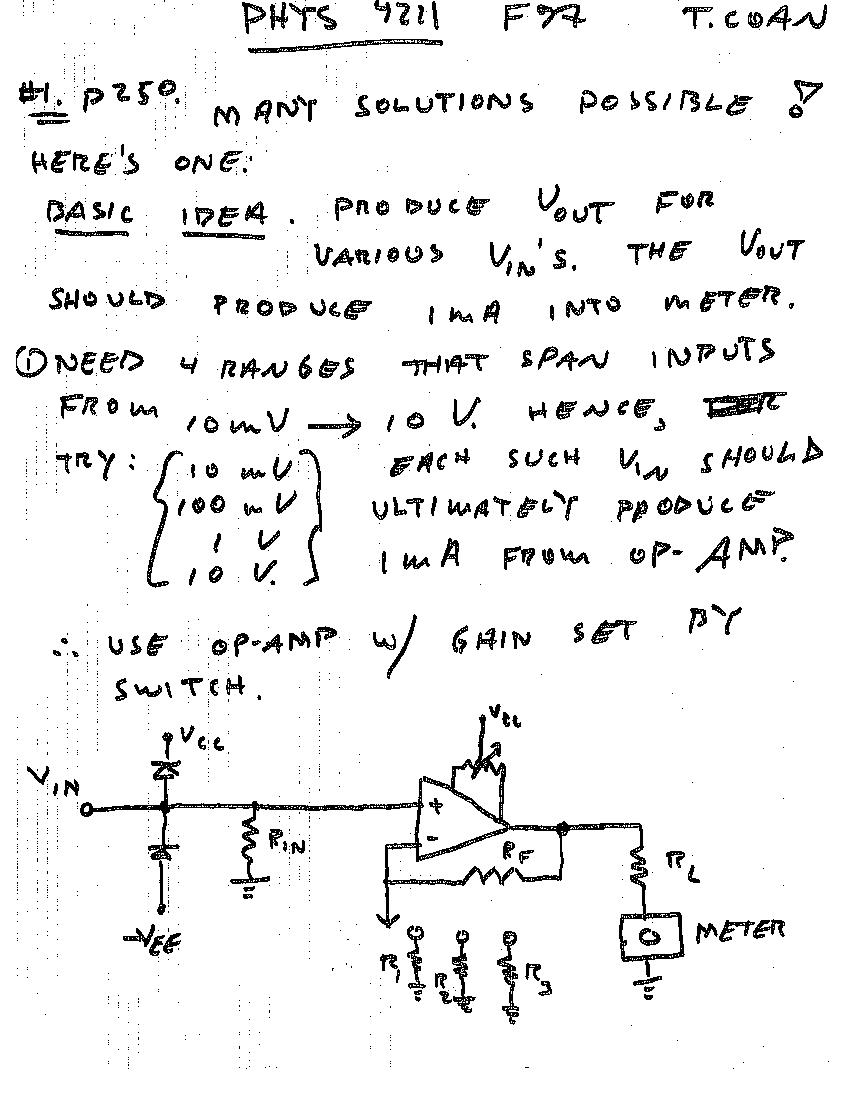 PHYS 4211 F97 T. COAN
#1. P250. MANY SOLUTIONS POSSIBLE!
HERE'S ONE:
BASIC IDEA. PRODUCE VOUT FOR
VARIOUS VIN'S. THE VOUT
SHOULD PRODUCE 1 mA INTO METER.
① NEED 4 RANGES THAT SPAN INPUTS
FROM 10mV → 10 V. HENCE,
TRY: { 10 mV } EACH SUCH VIN SHOULD
100 mV ULTIMATELY PRODUCE
1 V 1 mA FROM OP-AMP.
10 V.
∴ USE OP-AMP W/ GAIN SET BY
SWITCH.
VCC
VCC
VIN
+
-
RIN
RF
RL
-VEE
METER
R1
R2
R3